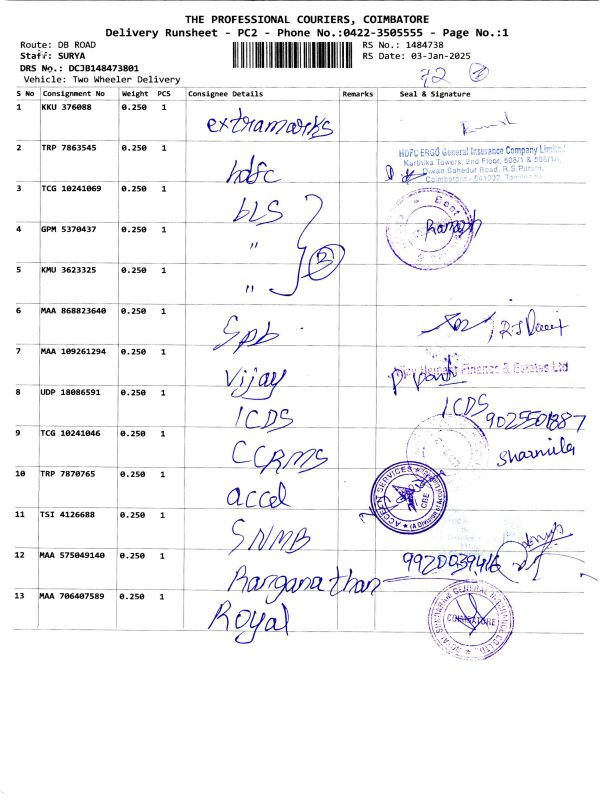 THE PROFESSIONAL COURIERS, COIMBATORE
Delivery Runsheet - PC2 - Phone No.:0422-3505555 - Page No.:1
Route: DB ROAD
RS No.: 1484738
Staff: SURYA
RS Date: 03-Jan-2025
DRS No.: DCJB148473801
Vehicle: Two Wheeler Delivery
72 2
S No Consignment No Weight PCS Consignee Details Remarks Seal & Signature
1 KKU 376088 0.250 1 extramarks
2 TRP 7863545 0.250 1 hdfc
HDFC ERGO General Insurance Company Limited
Karthika Towers, 2nd Floor, 508/1 & 508/1A,
Diwan Bahadur Road, R.S.Puram,
Coimbatore - 641002,
3 TCG 10241069 0.250 1 bLS
4 GPM 5370437 0.250 1 " Ramesh
3
5 KMU 3623325 0.250 1 "
6 MAA 868823640 0.250 1 Spb
7 MAA 109261294 0.250 1 Vijay Finance & Estates Ltd
8 UDP 18086591 0.250 1 ICDS ICDS
9 TCG 10241046 0.250 1 CCRMS Sharmila
10 TRP 7870765 0.250 1 accel
ACCENT SERVICES CBE
(A Division of
11 TSI 4126688 0.250 1 SNMB
12 MAA 575049140 0.250 1 Ranganathan 9920039416
13 MAA 706407589 0.250 1 Royal
ROYAL SUNDARAM GENERAL INSURANCE CO LTD. COIMBATORE